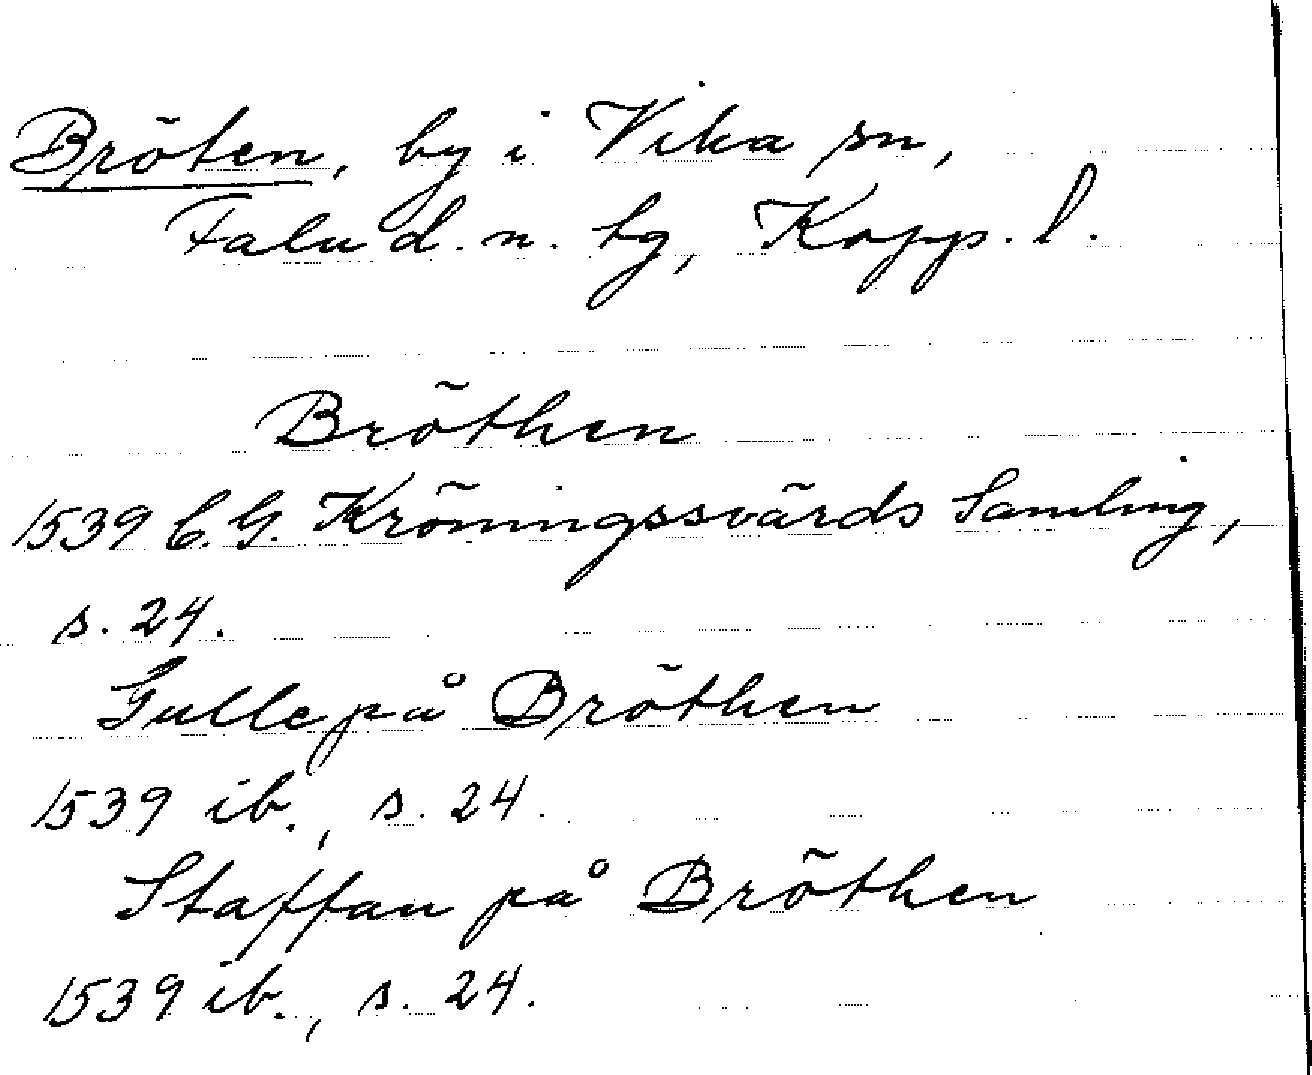 Bröten, by i Vika sn,
Falu d. n. tg, Kopp. l.
Bröthen
1539 C.G. Kröningssvärds Samling,
s. 24.
Gulle på Bröthen
1539 ib., s. 24.
Staffan på Bröthen
1539 ib., s. 24.